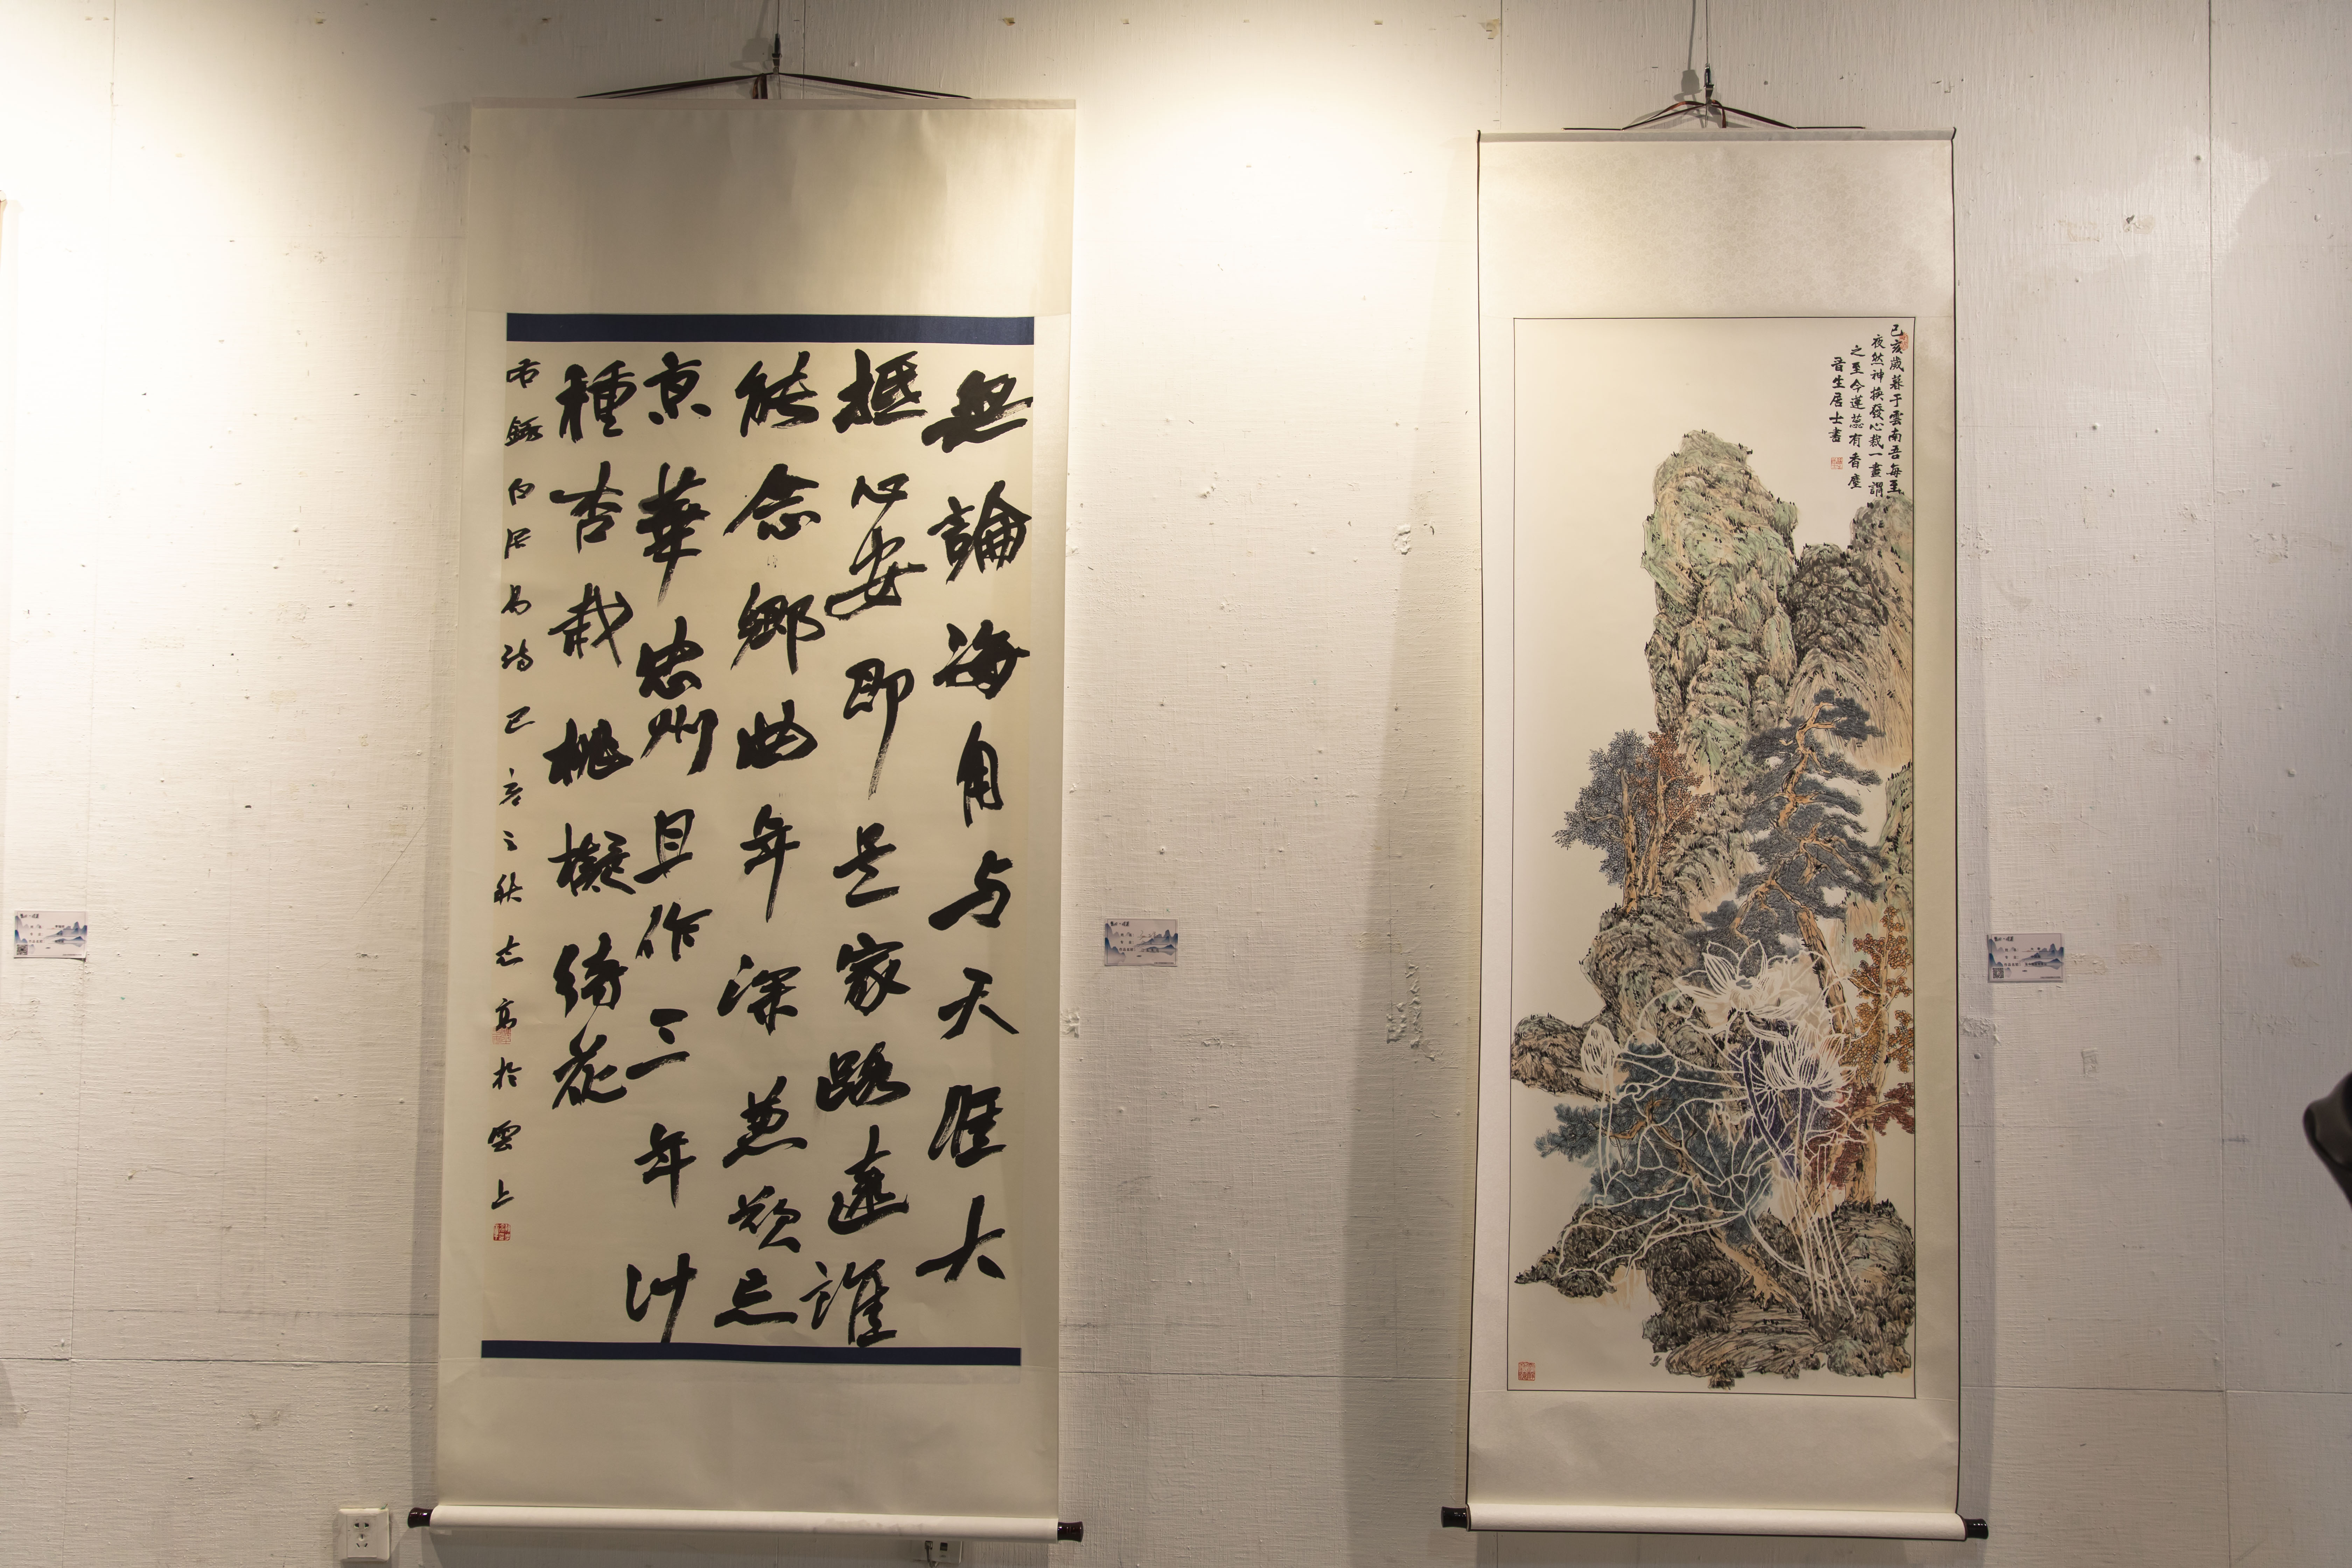 無論海角与天涯大
抵心安即是家路遠誰
能念鄉曲年深兼欲忘
京華忠州且作三年計
種杏栽桃擬綺花
右錄白居易詩己亥之秋志高於雲上
己亥歲暮于雲南吾每至
夜然神換發心栽一畫謂
之至今蓮蕊有香塵
晉生居士畫